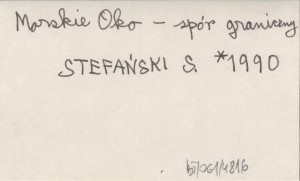 Morskie Oko - spór graniczny
STEFAŃSKI S. *1990
bj/061/4816